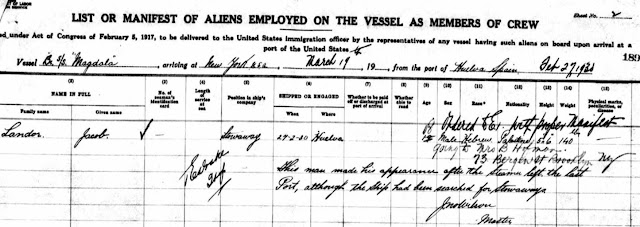 LIST OR MANIFEST OF ALIENS EMPLOYED ON THE VESSEL AS MEMBERS OF CREW
Sheet No. 2
ed under Act of Congress of February 5, 1917, to be delivered to the United States immigration officer by the representatives of any vessel having such aliens on board upon arrival at a
port of the United States
Vessel Br S/S "Magdala", arriving at New York U.S.A., March 19, 19 , from the port of Huelva Spain Feb 27, 1920
189
NAME IN FULL
Family name Given name
No. of seaman's identification card
Length of service at sea
Position in ship's company
SHIPPED OR ENGAGED
When Where
Whether to be paid off or discharged at port of arrival
Whether able to read
Age
Sex
Race
Nationality
Height
Weight
Physical marks, peculiarities, or disease
Landor Jacob Stowaway 27-2-20 Huelva Male Hebrew 5x6 140
going to Mrs B
73 Bergen St Brooklyn NY
This man made his appearance after the Steamer left the last
Port, although the ship had been searched for Stowaways
Master